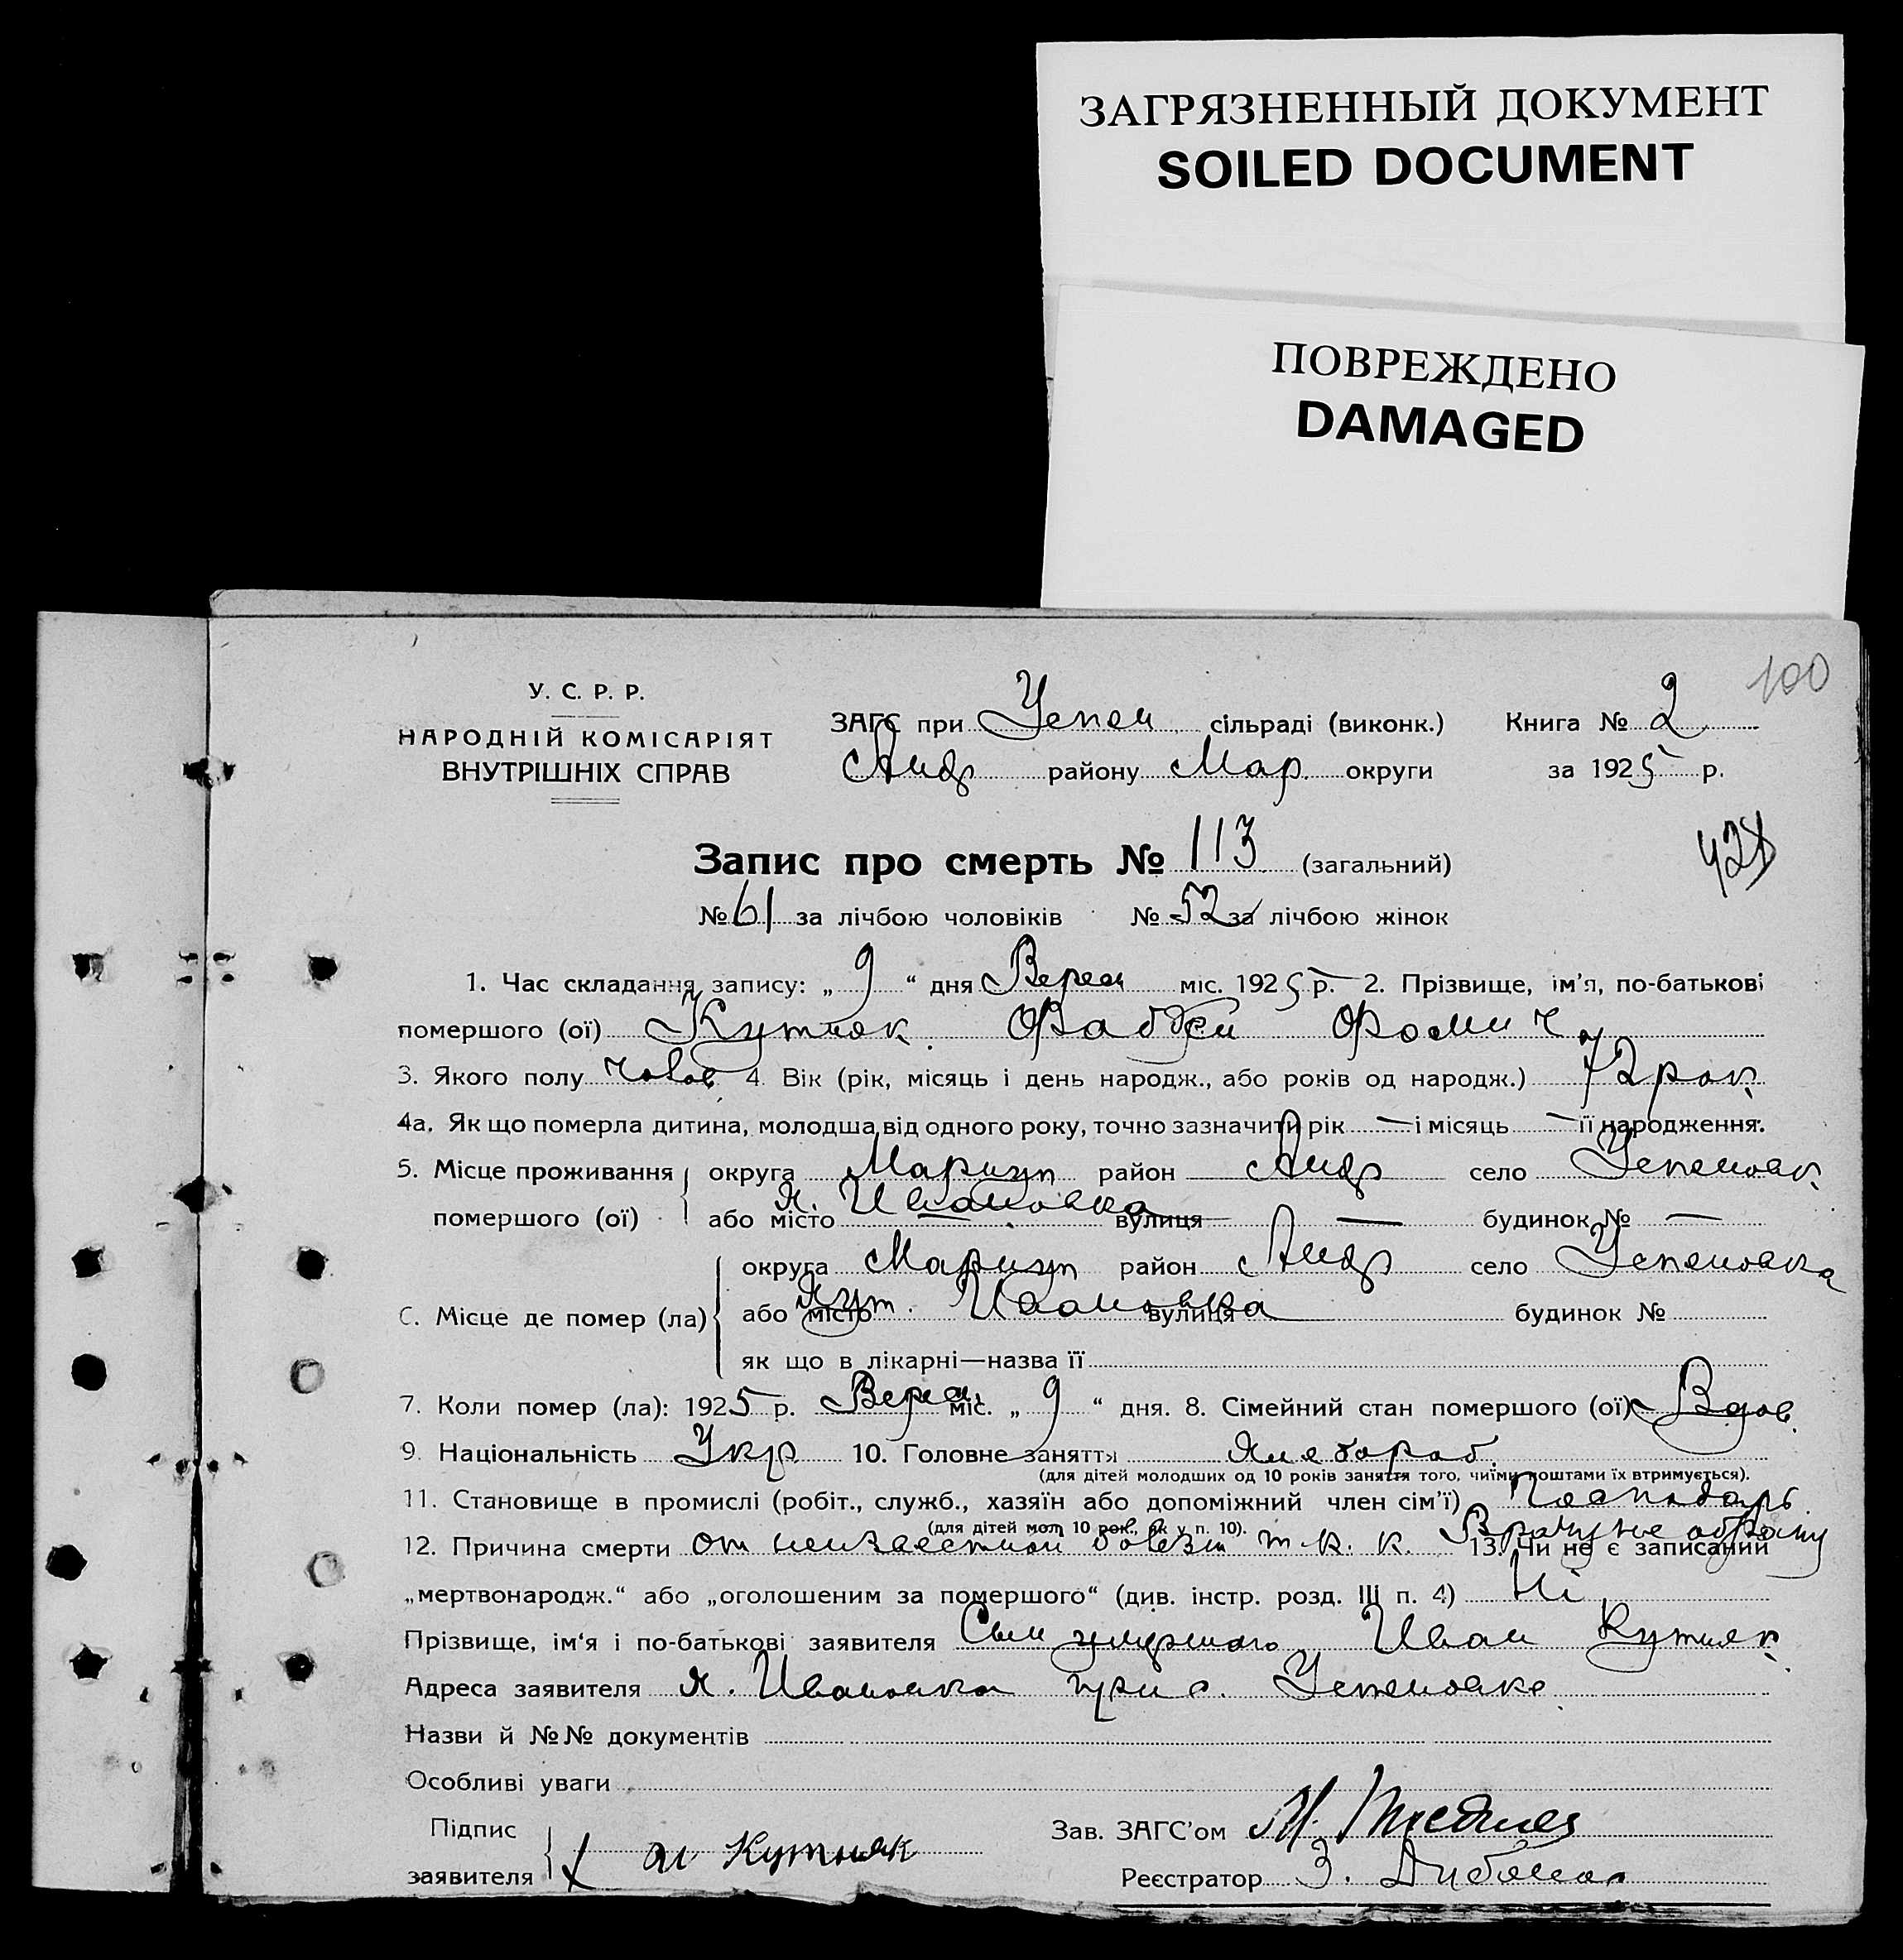 ЗАГРЯЗНЕННЫЙ ДОКУМЕНТ
SOILED DOCUMENT
ПОВРЕЖДЕНО
DAMAGED
100
У. С. Р. Р.
НАРОДНІЙ КОМІСАРІЯТ
ВНУТРІШНІХ СПРАВ
ЗАГС при Успен сільраді (виконк.) Книга № 2
Андр району Мар. округи за 1925 р.
Запис про смерть № 113 (загальний)
428
№ 61 за лічбою чоловіків № 52 за лічбою жінок
1. Час складання запису: „ 9 “ дня Верес міс. 1925 р. 2. Прізвище, ім'я, по-батькові
помершого (ої) Кутняк Фаддей Фомич
3. Якого полу чолов 4. Вік (рік, місяць і день народж., або років од народж.) 72 рок.
4а. Як що померла дитина, молодша від одного року, точно зазначити рік — і місяць — її народження.
5. Місце проживання округа Мариуп район Андр село Успеновк.
помершого (ої) або місто х. Ивановка вулиця — будинок № —
округа Мариуп район Андр село Успеновка
6. Місце де помер (ла) або місто Хут. Ивановка вулиця будинок №
як що в лікарні—назва її
7. Коли помер (ла): 1925 р. Верес міс. „ 9 “ дня. 8. Сімейний стан помершого (ої) Вдов.
9. Національність Укр 10. Головне заняття Хлебороб.
(для дітей молодших од 10 років заняття того, чиїми коштами їх втримується).
11. Становище в промислі (робіт., служб., хазяїн або допоміжний член сім'ї) Господарь
(для дітей мол. 10 рок., як у п. 10).
12. Причина смерти От неизвестной болезни т. к. к. Врачу не обращ 13. Чи не є записаний
„мертвонародж.“ або „оголошеним за помершого“ (див. інстр. розд. III п. 4) Ні
Прізвище, ім'я і по-батькові заявителя Сын умершого Иван Кутняк
Адреса заявителя х. Ивановка при с. Успеновке
Назви й №№ документів
Особливі уваги
Підпис
заявителя Кутняк
Зав. ЗАГС'ом
Реєстратор З.